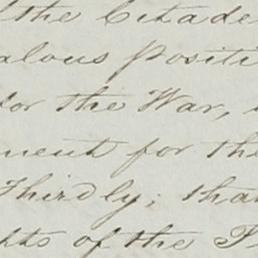 the Citade
alous positi
for the War,
ment for the
Thirdly; tha
ts of the P